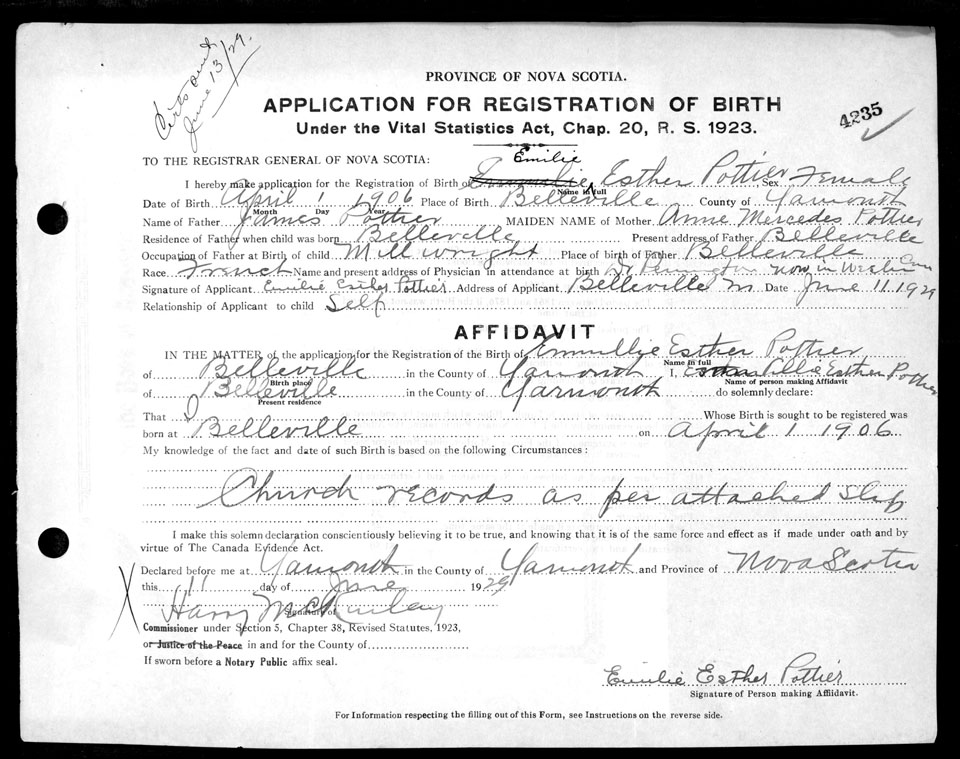 Certs sent
June 13/29.
PROVINCE OF NOVA SCOTIA.
APPLICATION FOR REGISTRATION OF BIRTH
4235
Under the Vital Statistics Act, Chap. 20, R. S. 1923.
TO THE REGISTRAR GENERAL OF NOVA SCOTIA:
Emilie
I hereby make application for the Registration of Birth of Esther Pottier Sex Female
Name in full
Date of Birth April 1 1906 Place of Birth Belleville County of Yarmouth
Month Day Year
Name of Father James Pottier MAIDEN NAME of Mother Anne Mercedes Pottier
Residence of Father when child was born Belleville Present address of Father Belleville
Occupation of Father at Birth of child Mill wright Place of birth of Father Belleville
Race French Name and present address of Physician in attendance at birth Dr now in
Signature of Applicant Emilie Esther Pottier Address of Applicant Belleville Date June 11 1929
Relationship of Applicant to child Self
AFFIDAVIT
IN THE MATTER of the application for the Registration of the Birth of Emillie Esther Pottier
Name in full
of Belleville in the County of Yarmouth I, Esther Pottier
Birth place
Name of person making Affidavit
of Belleville in the County of Yarmouth do solemnly declare:
Present residence
That I Whose Birth is sought to be registered was
born at Belleville on April 1 1906
My knowledge of the fact and date of such Birth is based on the following Circumstances:
Church records as per attached slip
I make this solemn declaration conscientiously believing it to be true, and knowing that it is of the same force and effect as if made under oath and by
virtue of The Canada Evidence Act.
Declared before me at Yarmouth in the County of Yarmouth and Province of Nova Scotia
X this 11 day of June 1929
Harry McKinley
Signature of
Commissioner under Section 5, Chapter 38, Revised Statutes, 1923,
or Justice of the Peace in and for the County of
If sworn before a Notary Public affix seal.
Emilie Esther Pottier
Signature of Person making Affidavit.
For Information respecting the filling out of this Form, see Instructions on the reverse side.